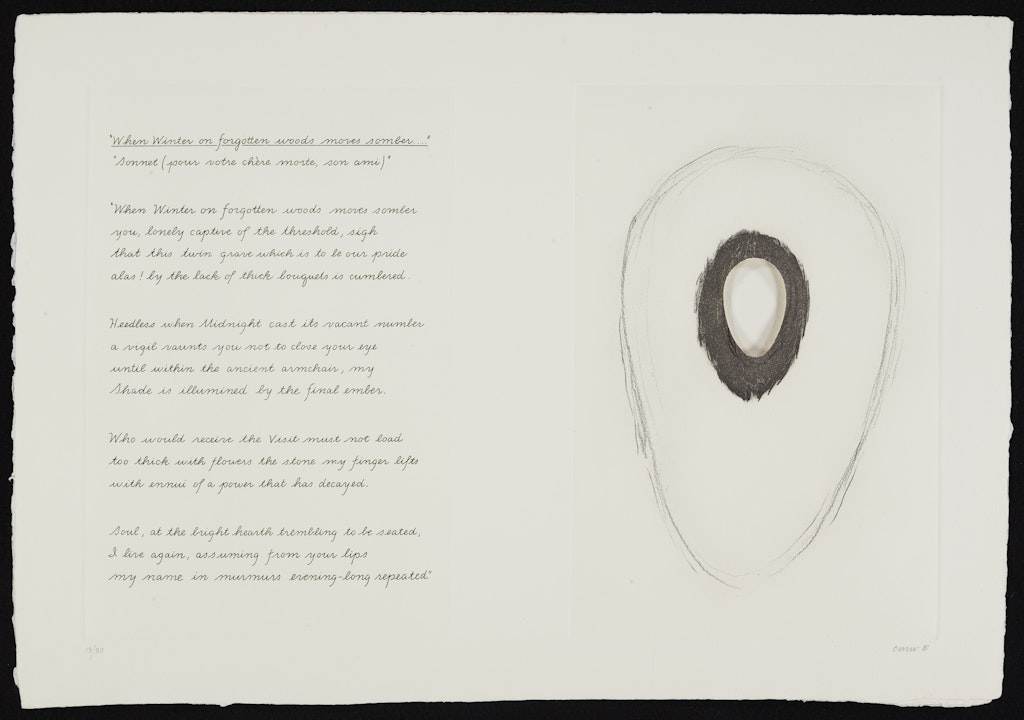 "When Winter on forgotten woods moves somber...."
"Sonnet (pour votre chère morte, son ami)"
"When Winter on forgotten woods moves somber
you, lonely captive of the threshold, sigh
that this twin grave which is to be our pride
alas! by the lack of thick bouquets is cumbered.
Heedless when Midnight cast its vacant number
a vigil vaunts you not to close your eye
until within the ancient armchair, my
Shade is illumined by the final ember.
Who would receive the Visit must not load
too thick with flowers the stone my finger lifts
with ennui of a power that has decayed.
Soul, at the bright hearth trembling to be seated,
I live again, assuming from your lips
my name in murmurs evening-long repeated."